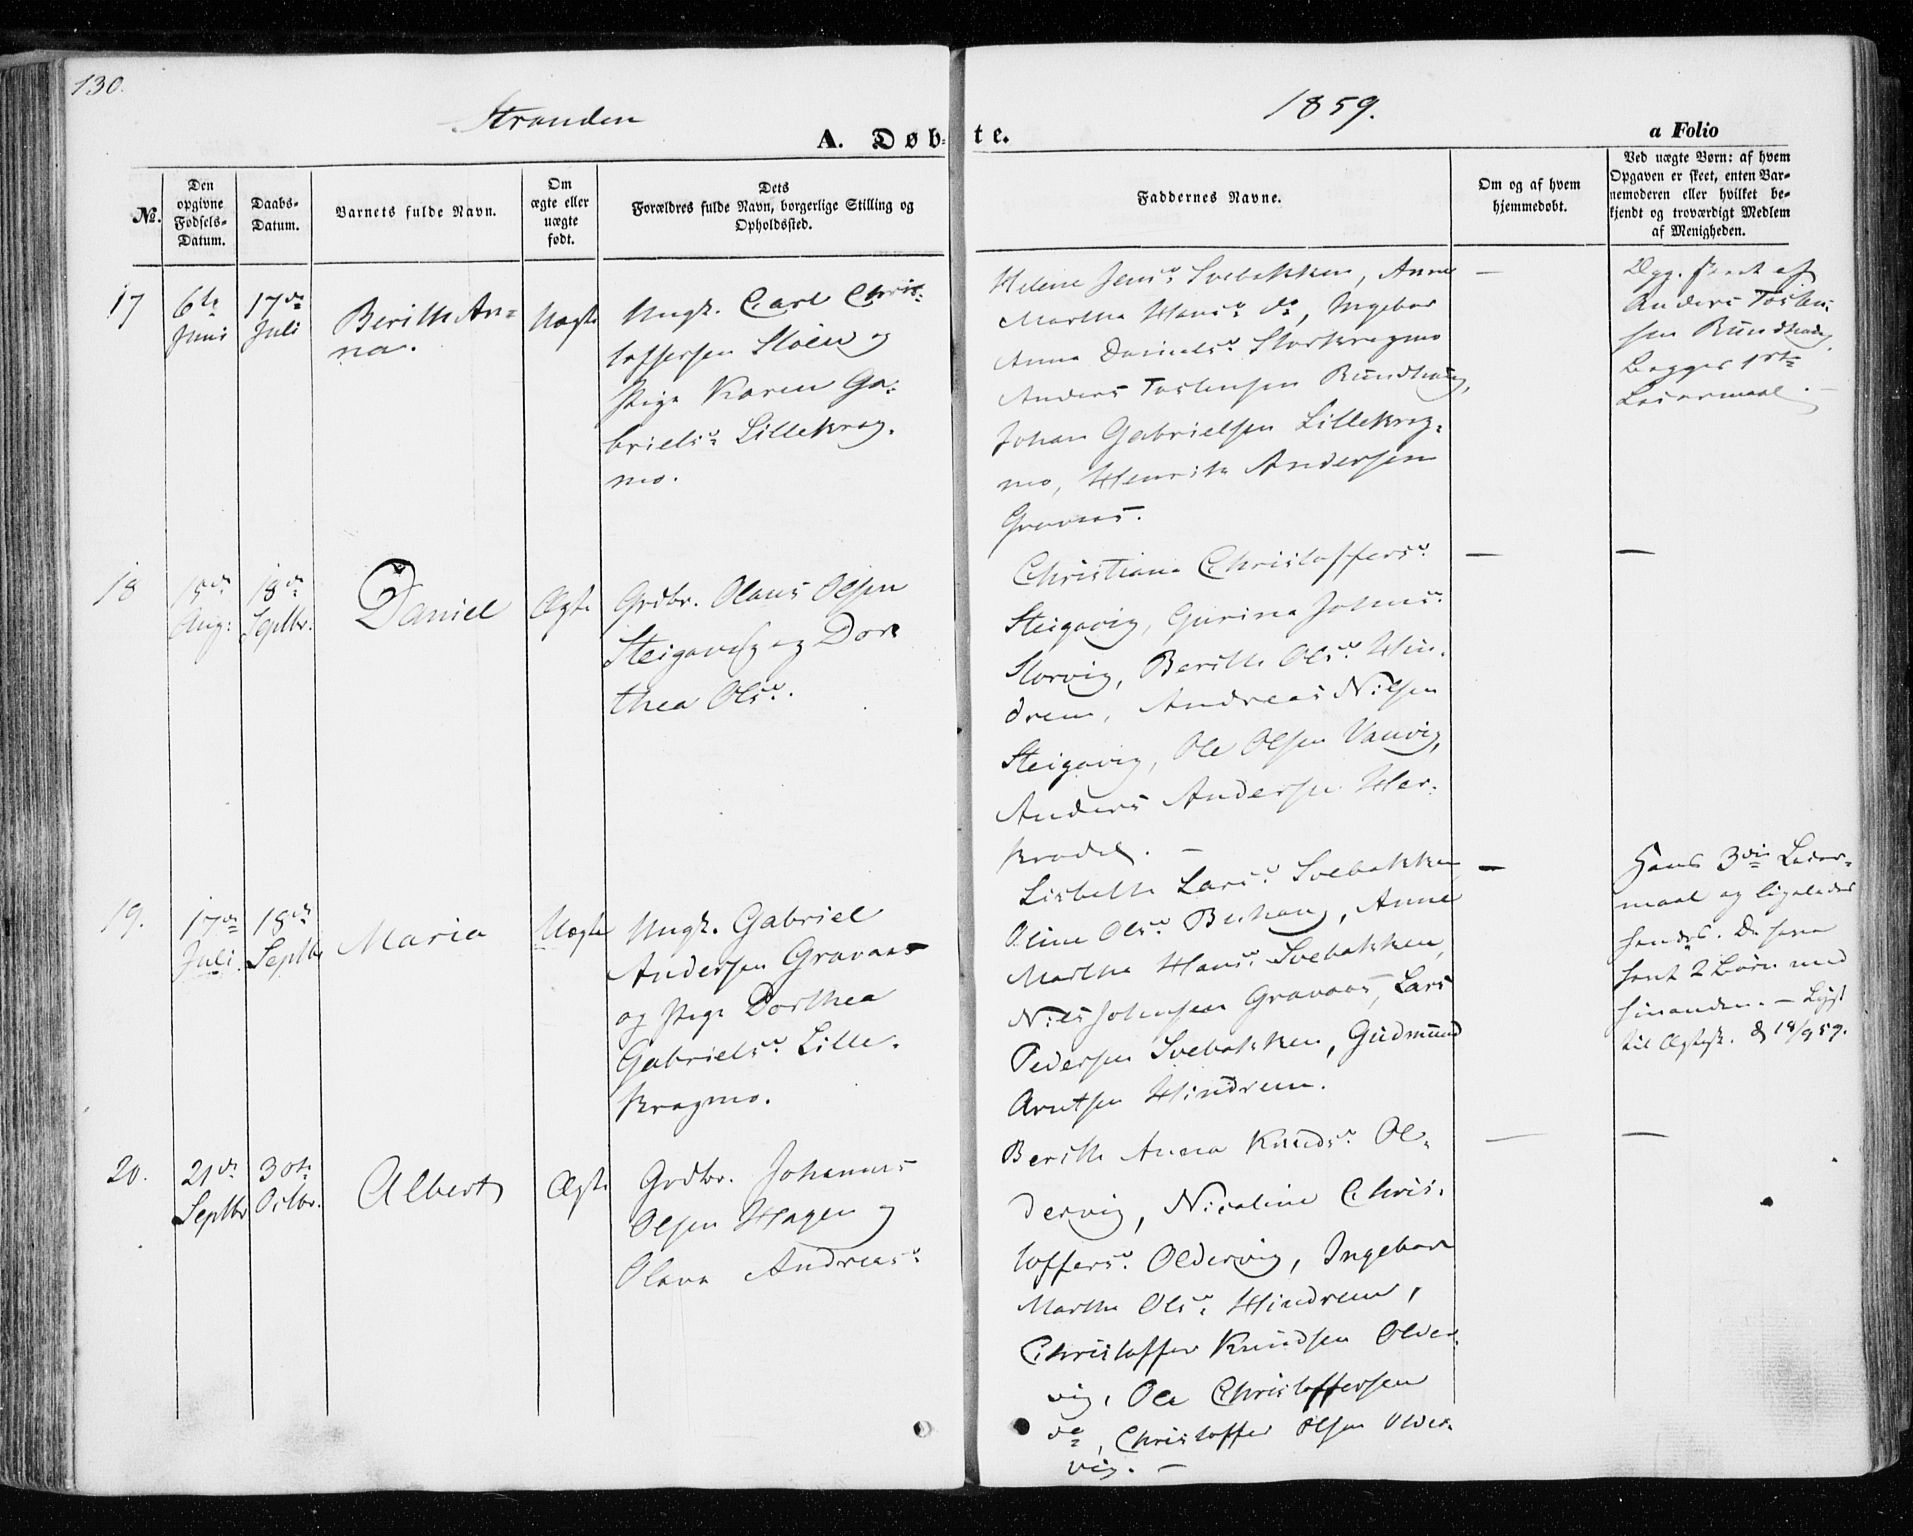 130.
Stranden
1859.
A. Døb-
te.
a Folio
No.
Den opgivne Fødsels-Datum.
Daabs-Datum.
Barnets fulde Navn.
Om ægte eller uægte født.
Dets Forældres fulde Navn, borgerlige Stilling og Opholdssted.
Faddernes Navne.
Om og af hvem hjemmedøbt.
Ved uægte Børn: af hvem Opgaven er skeet, enten Barnemoderen eller hvilket bekjendt og troværdigt Medlem af Menigheden.
17
6te Juni
17de Juli
Berith An=
na.
Uægte
Ungk. Carl Chris:
toffersen Sloen og
Pige Karen Ga:
brielsd. Lillekrag.
mo.
Helene Jensd. Svebakken, Anne
Martha Hansd. do, Ingebor
Anna Danielsd. Storkragmo
Anders Tostensen Rundhaug,
Johan Gabrielsen Lillekrag=
mo, Henrik Andersen
Gravaas.
—
Opg. skeet af
Anders Tosten:
sen Rundhaug
Begges 1ste
Leiermaal.—
18
15de Aug:
18de Septbr.
Daniel
Ægte
Grdbr. Olaus Olsen
Steigavig og Dor
thea Olsd.
Christiana Christoffersd.
Steigavig, Gurina Johnsd.
Storvig, Berith Olsd. Hin.
drem, Andreas Nilsen
Steigavig, Ole Olsen Vanvig,
Anders Andersen Her.
kradel. —
—
—
19.
17de Juli
18de Septbr
Maria
Uægte
Ungk. Gabriel
Andersen Gravaas
og Pige Dorthea
Gabrielsd. Lille.
kragmo.
Lisbeth Larsd. Svebakken
Oline Olsd. Berhaug, Anne
Martha Hansd. Svebakken,
Nils Johnsen Gravaas, Lars
Pedersen Svebakken, Gudmund
Arntsen Hindrem.
—
Hans 3die Leier=
maal og ligeledes
hendes. De have
havt 2 Børn med
hinanden. — Lyst
til Ægtesk. d 18/9 59.
20.
21de Septbr
30te Octbr.
Albert
Ægte
Grdbr. Johannes
Olsen Hagen og
Olava Andreasd.
Berith Anna Knudsd. Ol=
dervig, Nicoline Chris.
toffersd. Oldervig, Ingebor
Martha Olsd. Hindrem,
Christoffer Knudsen Older.
vig, Ole Christoffersen
do, Christoffer Olsen Older.
vig. —
—
—